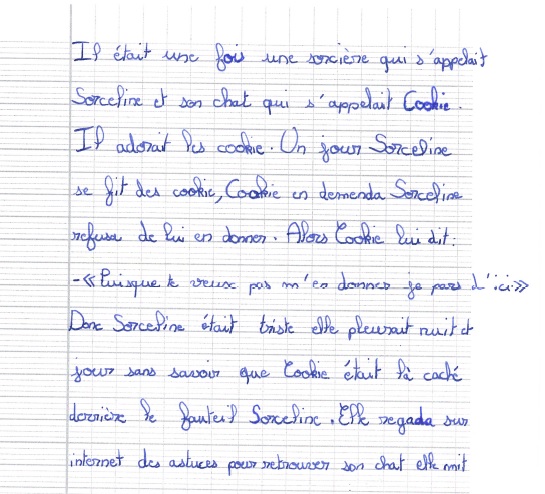 Il était une fois une sorcière qui s'appelait
Sorceline et son chat qui s'appelait Cookie.
Il adorait les cookie. Un jour Sorceline
se fit des cookie, Cookie en demenda Sorceline
refusa de lui en donner. Alors Cookie lui dit:
-«Puisque tu veux pas m'en donner je pars d'ici»
Donc Sorceline était triste elle pleurait nuit et
jour sans savoir que Cookie était là caché
derrière le fauteil Sorceline. Elle regada sur
internet des astuces pour retrouver son chat elle mit